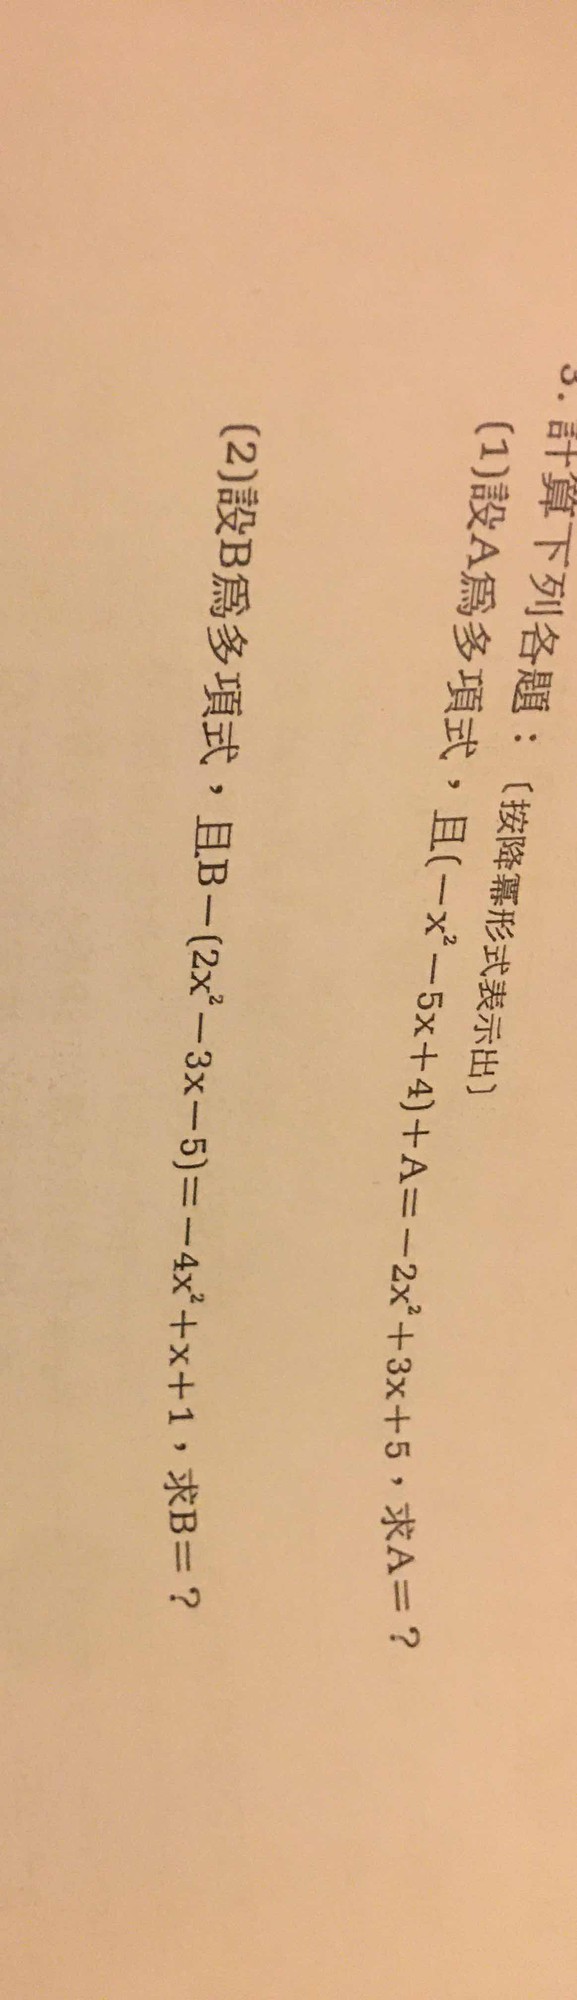 3.計算下列各題：〔按降冪形式表示出〕
(1)設A為多項式，且(−x²−5x+4)+A=−2x²+3x+5，求A=？
(2)設B為多項式，且B−(2x²−3x−5)=−4x²+x+1，求B=？